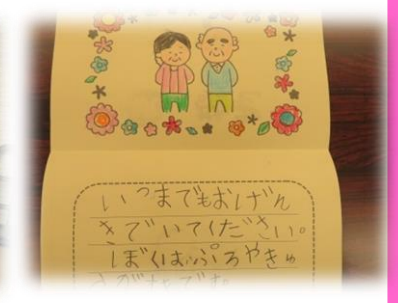 いつまでもおげん
きでいてください。
ぼくはぷろやきゅ